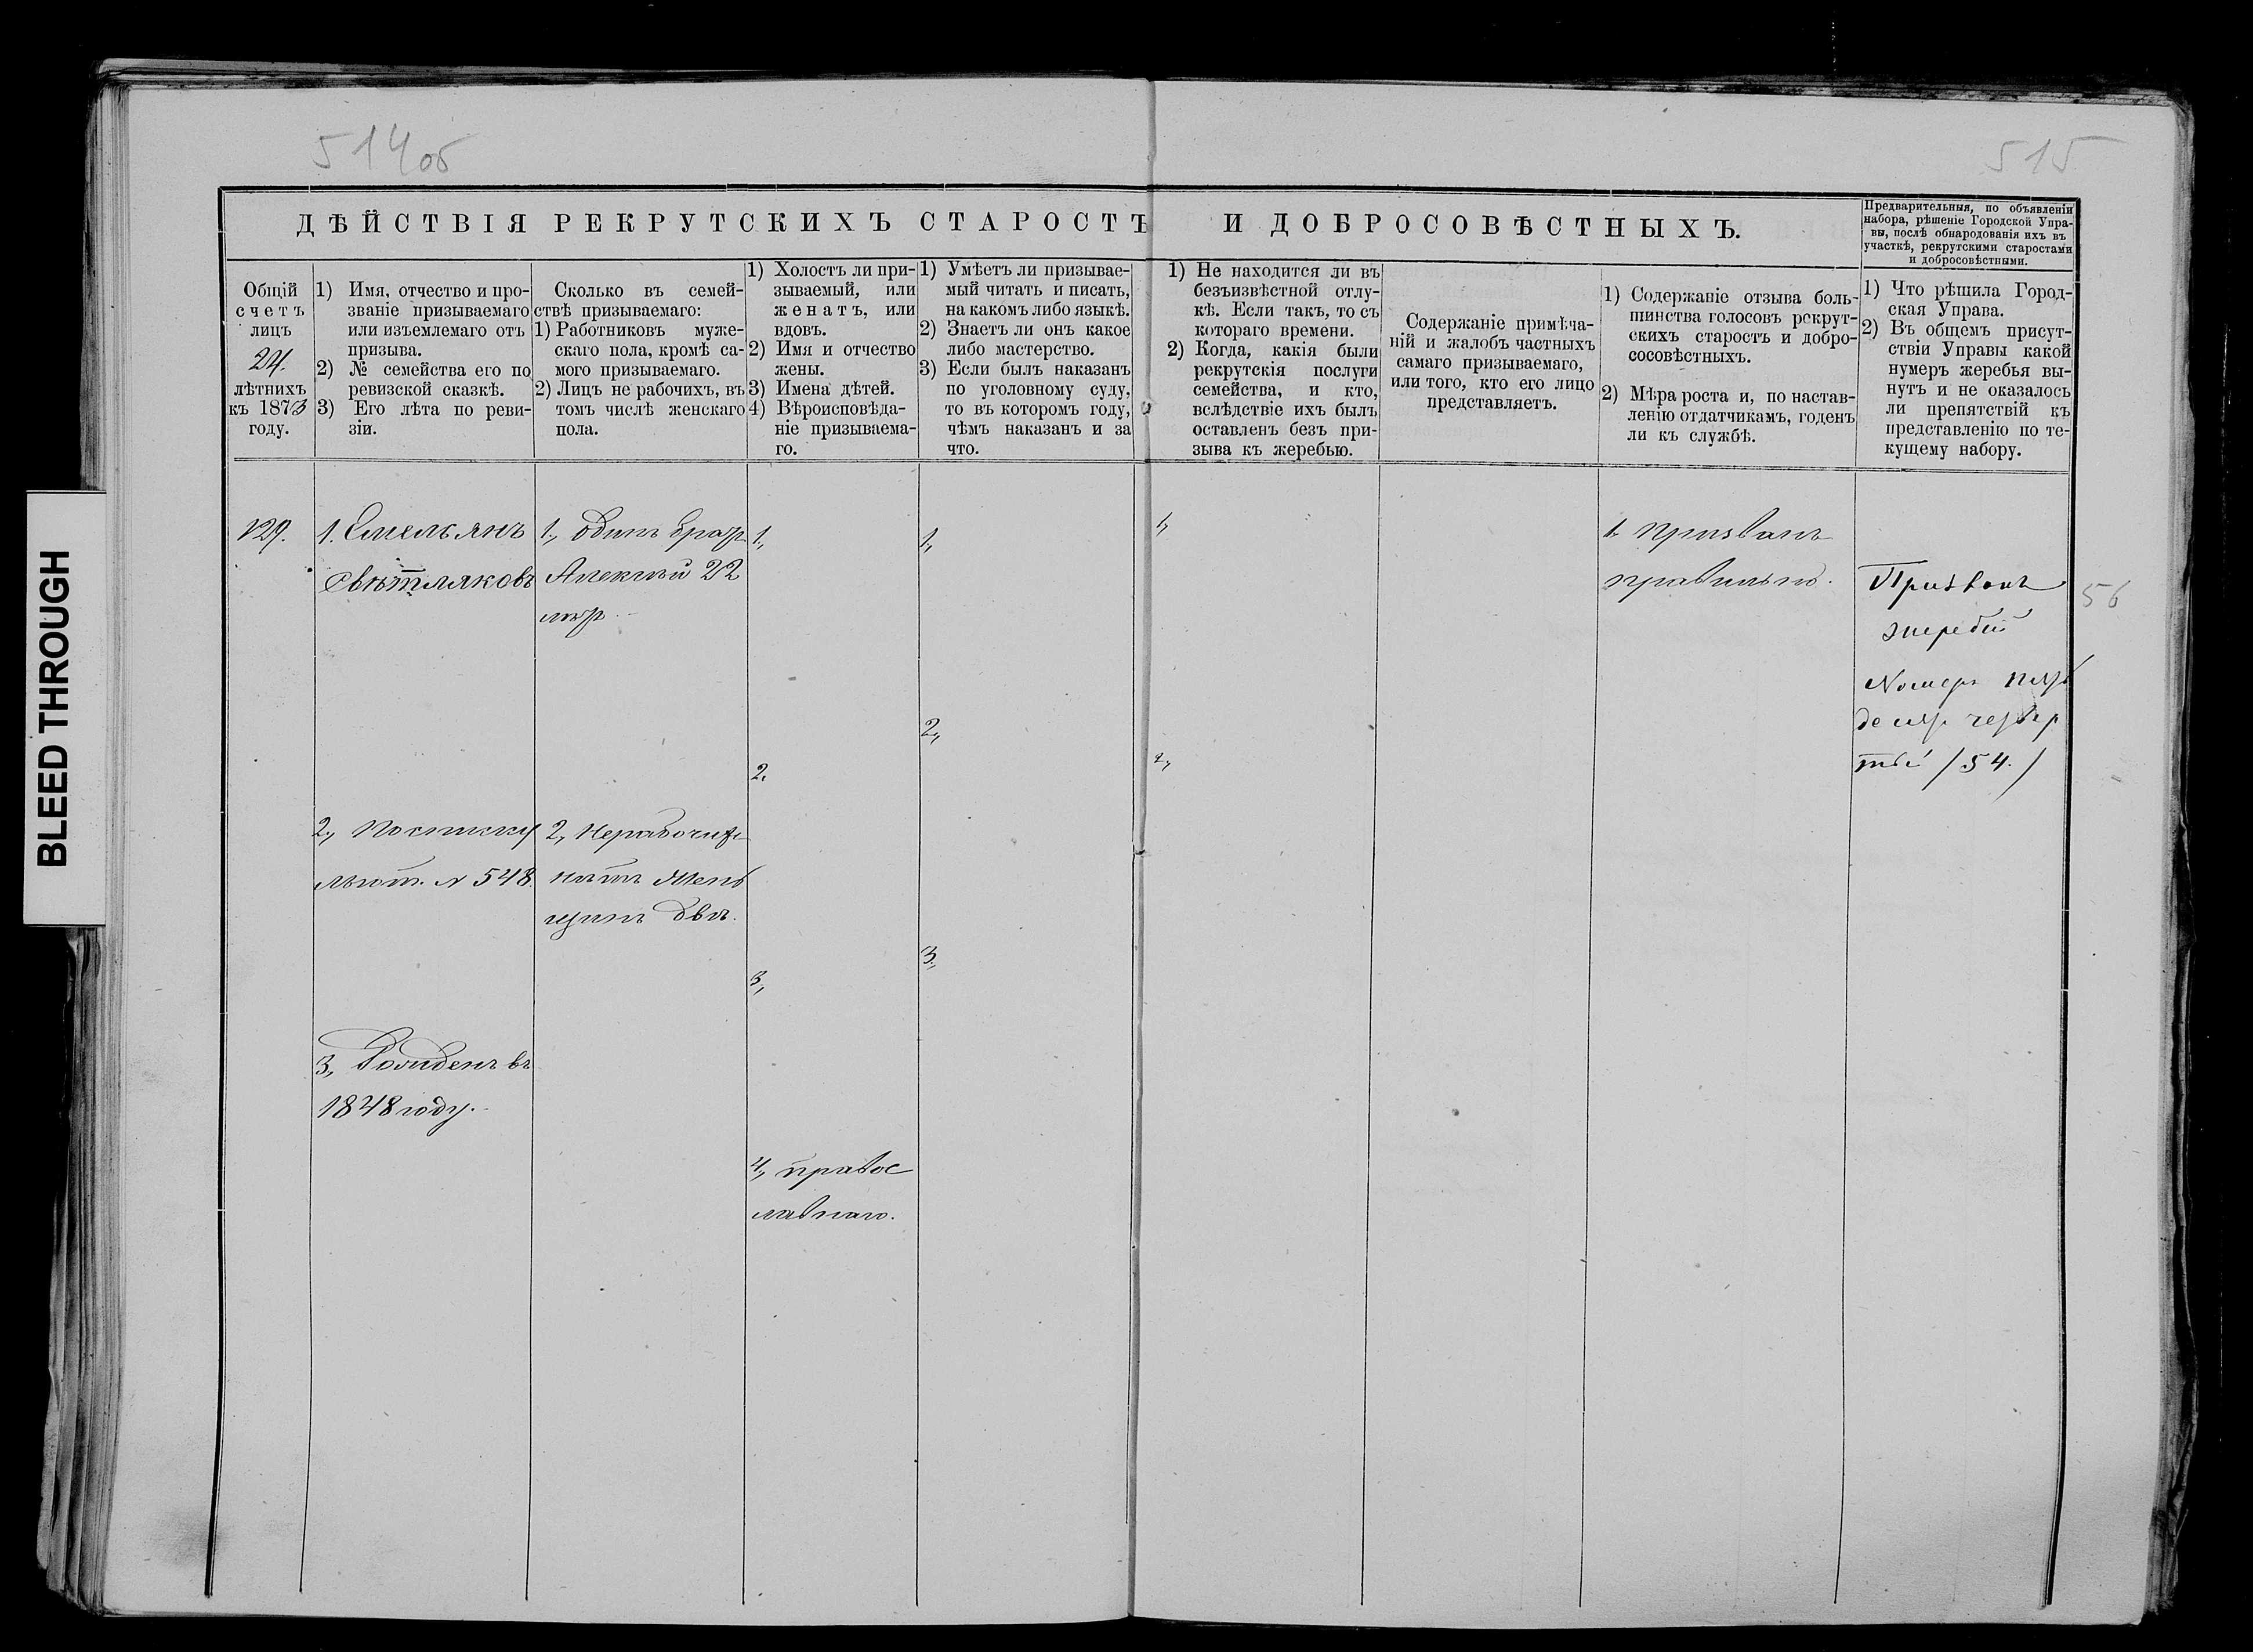 514об
515
ДѢЙСТВІЯ РЕКРУТСКИХЪ СТАРОСТЪ И ДОБРОСОВѢСТНЫХЪ.
Предварительныя, по объявленіи
набора, рѣшеніе Городской Упра-
вы, послѣ обнародованія ихъ въ
участкѣ, рекрутскими старостами
и добросовѣстными.
Общій
счетъ
лицъ
24.
лѣтнихъ
къ 1873
году.
1) Имя, отчество и про-
званіе призываемаго
или изъемлемаго отъ
призыва.
2) № семейства его по
ревизской сказкѣ.
3) Его лѣта по реви-
зіи.
Сколько въ семей-
ствѣ призываемаго:
1) Работниковъ муже-
скаго пола, кромѣ са-
мого призываемаго.
2) Лицъ не рабочихъ, въ
томъ числѣ женскаго
пола.
1) Холостъ ли при-
зываемый, или
женатъ, или
вдовъ.
2) Имя и отчество
жены.
3) Имена дѣтей.
4) Вѣроисповѣда-
ніе призываема-
го.
1) Умѣетъ ли призывае-
мый читать и писать,
на какомъ либо языкѣ.
2) Знаетъ ли онъ какое
либо мастерство.
3) Если былъ наказанъ
по уголовному суду,
то въ которомъ году,
чѣмъ наказанъ и за
что.
1) Не находится ли въ
безъизвѣстной отлу-
кѣ. Если такъ, то съ
котораго времени.
2) Когда, какія были
рекрутскія послуги
семейства, и кто,
вслѣдствіе ихъ былъ
оставленъ безъ при-
зыва къ жеребью.
Содержаніе примѣча-
ній и жалобъ частныхъ
самаго призываемаго,
или того, кто его лицо
представляетъ.
1) Содержаніе отзыва боль-
шинства голосовъ рекрут-
скихъ старостъ и добро-
сосовѣстныхъ.
2) Мѣра роста и, по настав-
ленію отдатчикамъ, годенъ
ли къ службѣ.
1) Что рѣшила Город-
ская Управа.
2) Въ общемъ присут-
ствіи Управы какой
нумеръ жеребья вы-
нутъ и не оказалось
ли препятствій къ
представленію по те-
кущему набору.
129.
1. Емельянъ
Свѣтляковъ
2,, По списку
льгот. № 548.
3,, Рожденъ въ
1848 году.
1,, Одинъ братъ
Алексѣй 22
лѣтъ
2,, Нерабочихъ
нѣтъ Жен
щинъ двѣ.
1,,
2.
3,,
4,, правос
лавнаго.
1,,
2,,
3,,
1,,
2,,
1. Призванъ
правильно.
Призванъ
жеребій
Номеръ пять
десят четвер
тый /54./
56
BLEED THROUGH